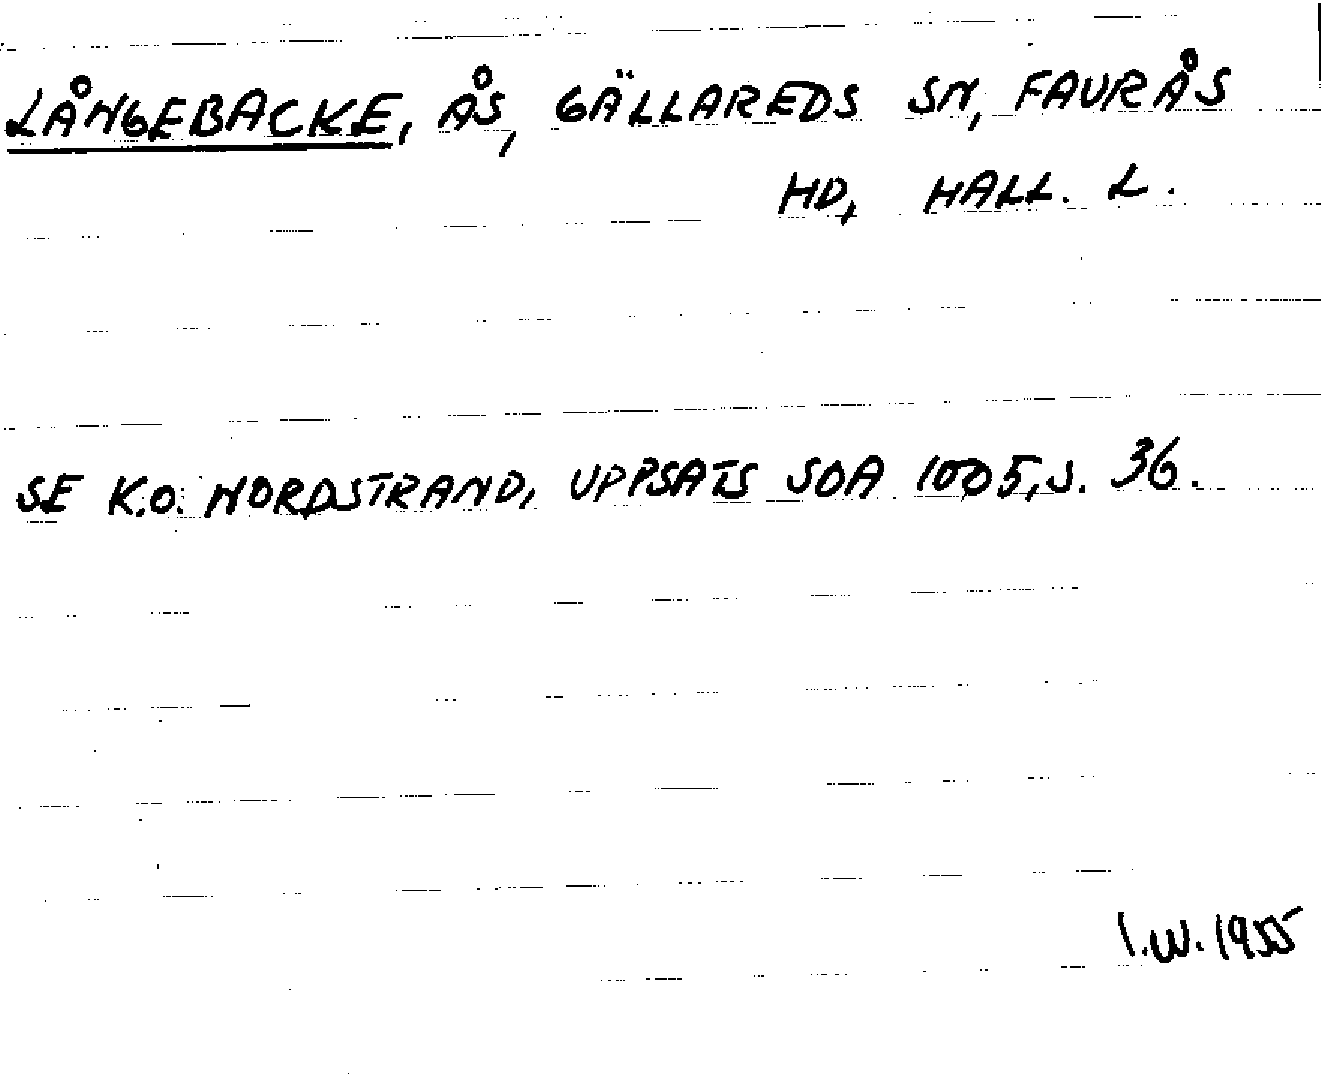 LÅNGEBACKE, ÅS, GÄLLAREDS SN, FAURÅS
HD, HALL. L.
SE K.O. NORDSTRAND, UPPSATS SOA 1005, S. 36.
I.W. 1955